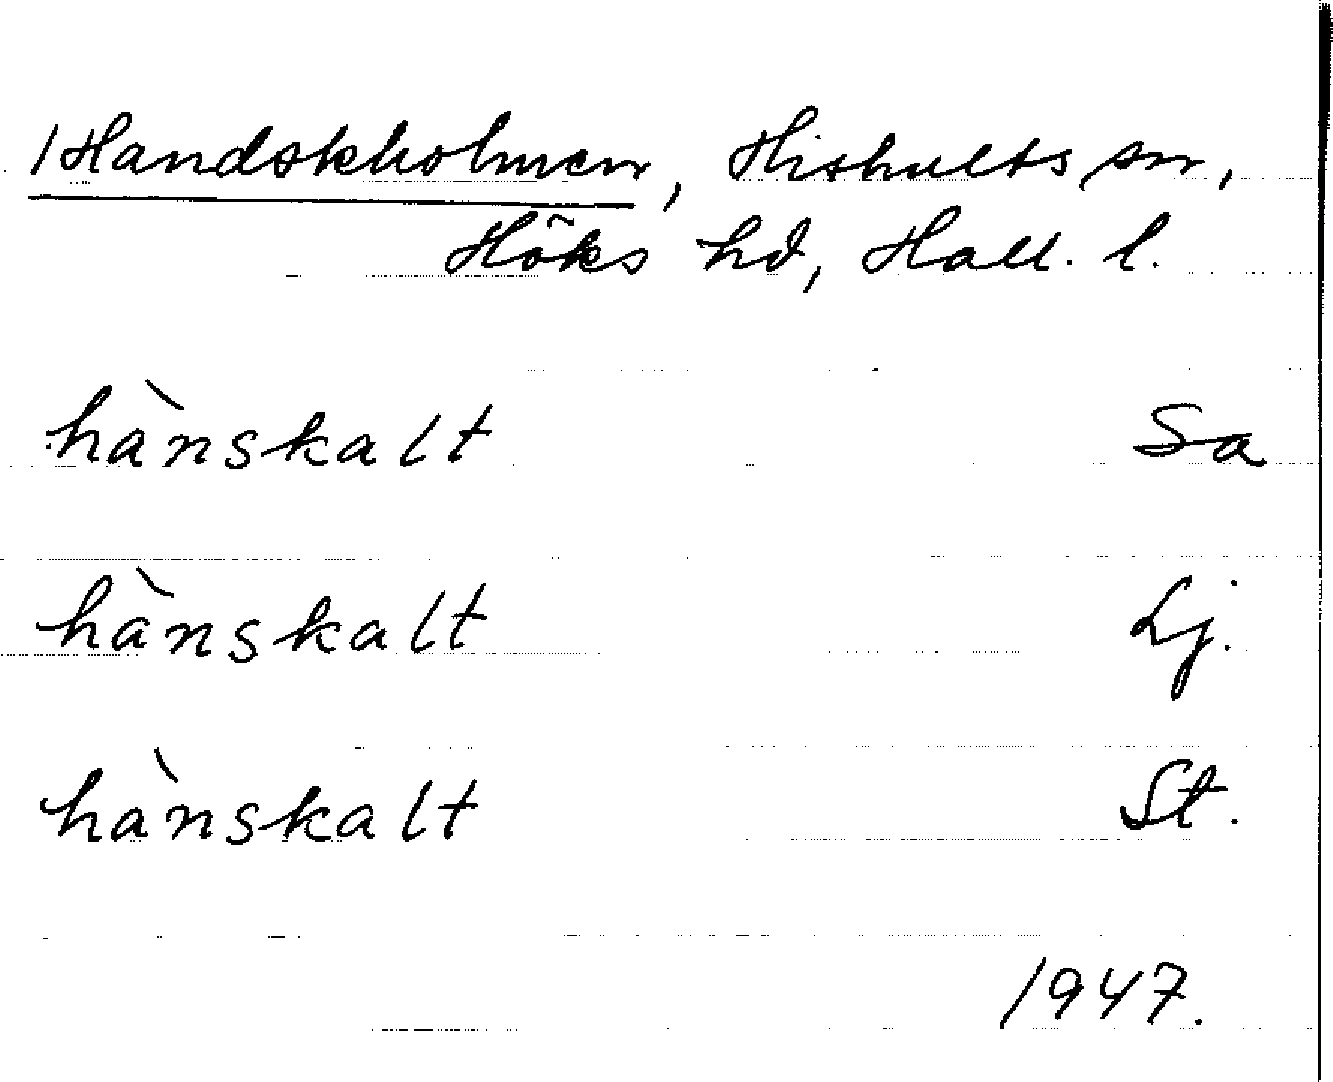 /Handskholmen, Hishults sn,
Höks hd, Hall. l.
hànskalt Sa
hànskalt Lj.
hànskalt St.
1947.